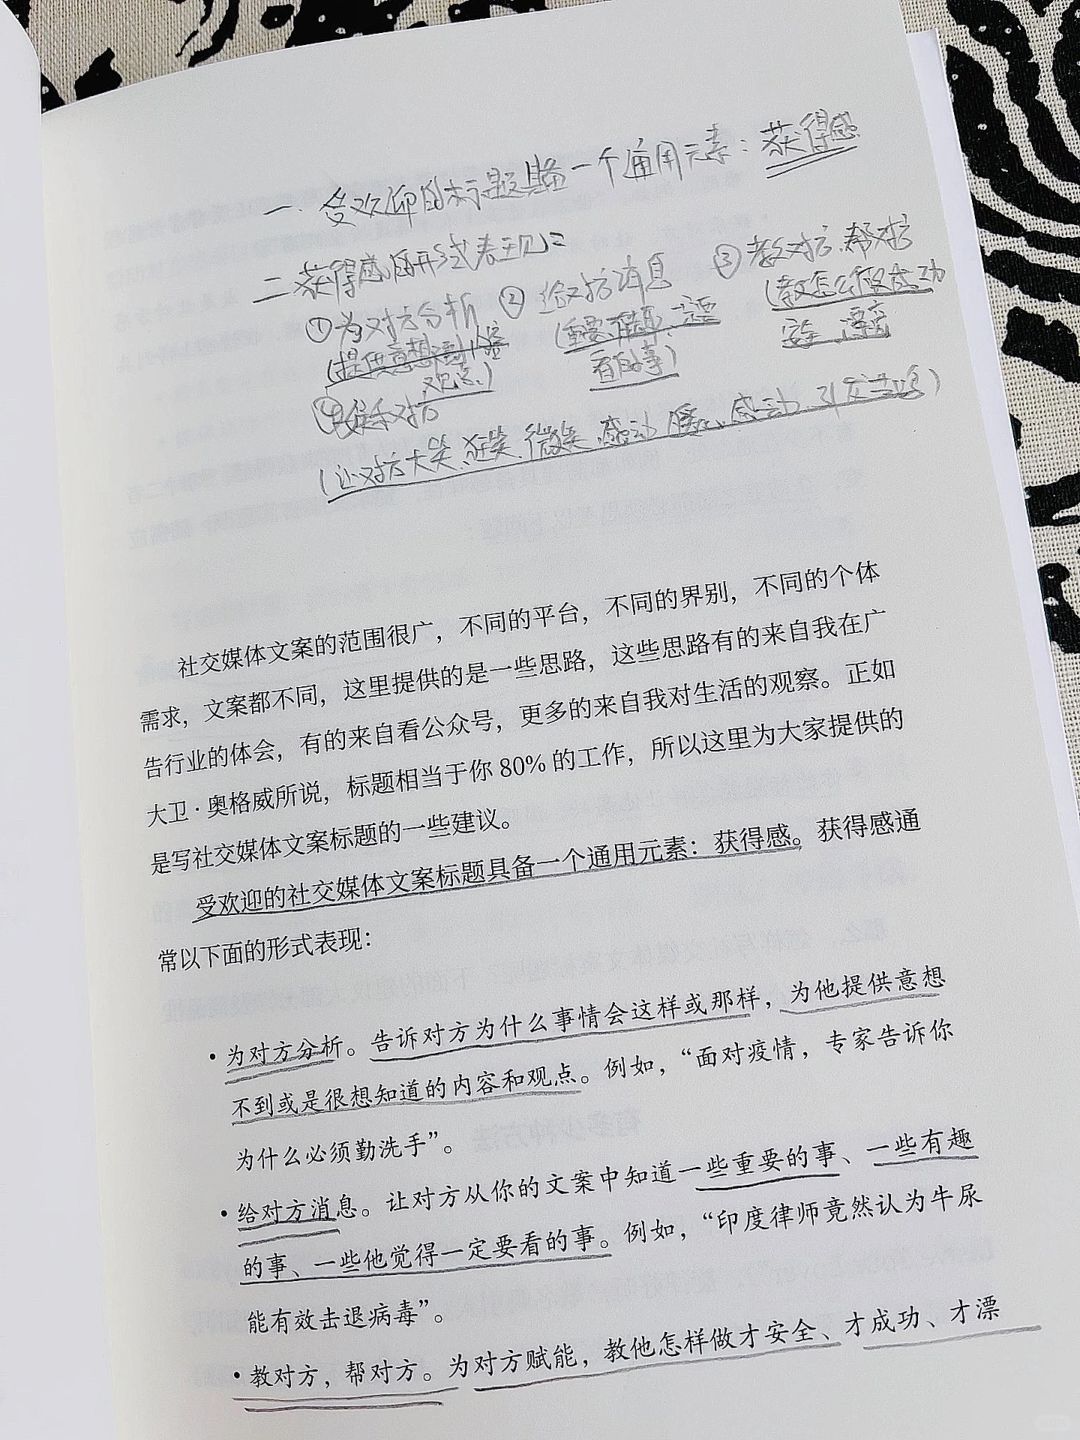 一、受欢迎的标题具备一个通用元素：获得感
二、获得感的形式表现：
①为对方分析 ②给对方消息 ③教对方、帮对方
(提供意想不到、
观点) (重要、有趣、一定要
看的事) (教怎么做成功
安全、漂亮
④娱乐对方
(让对方大笑、狂笑、微笑、感动、暖心、感动、引发共鸣)
社交媒体文案的范围很广，不同的平台，不同的界别，不同的个体
需求，文案都不同，这里提供的是一些思路，这些思路有的来自我在广
告行业的体会，有的来自看公众号，更多的来自我对生活的观察。正如
大卫·奥格威所说，标题相当于你 80% 的工作，所以这里为大家提供的
是写社交媒体文案标题的一些建议。
受欢迎的社交媒体文案标题具备一个通用元素：获得感。获得感通
常以下面的形式表现：
• 为对方分析。告诉对方为什么事情会这样或那样，为他提供意想
不到或是很想知道的内容和观点。例如，“面对疫情，专家告诉你
为什么必须勤洗手”。
• 给对方消息。让对方从你的文案中知道一些重要的事、一些有趣
的事、一些他觉得一定要看的事。例如，“印度律师竟然认为牛尿
能有效击退病毒”。
• 教对方，帮对方。为对方赋能，教他怎样做才安全、才成功、才漂